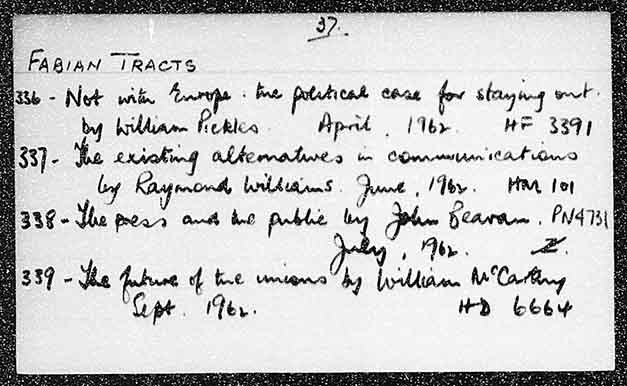 37.
FABIAN TRACTS
336 - Not with Europe. the political case for staying out.
by William Pickles. April, 1962. HF 3391
337 - The existing alternatives in communications
by Raymond Williams. June, 1962. HM 101
338 - The press and the public by John Beavan. PN4731
July, 1962. Z.
339 - The future of the unions by William McCarthy
Sept. 1962. HD 6664